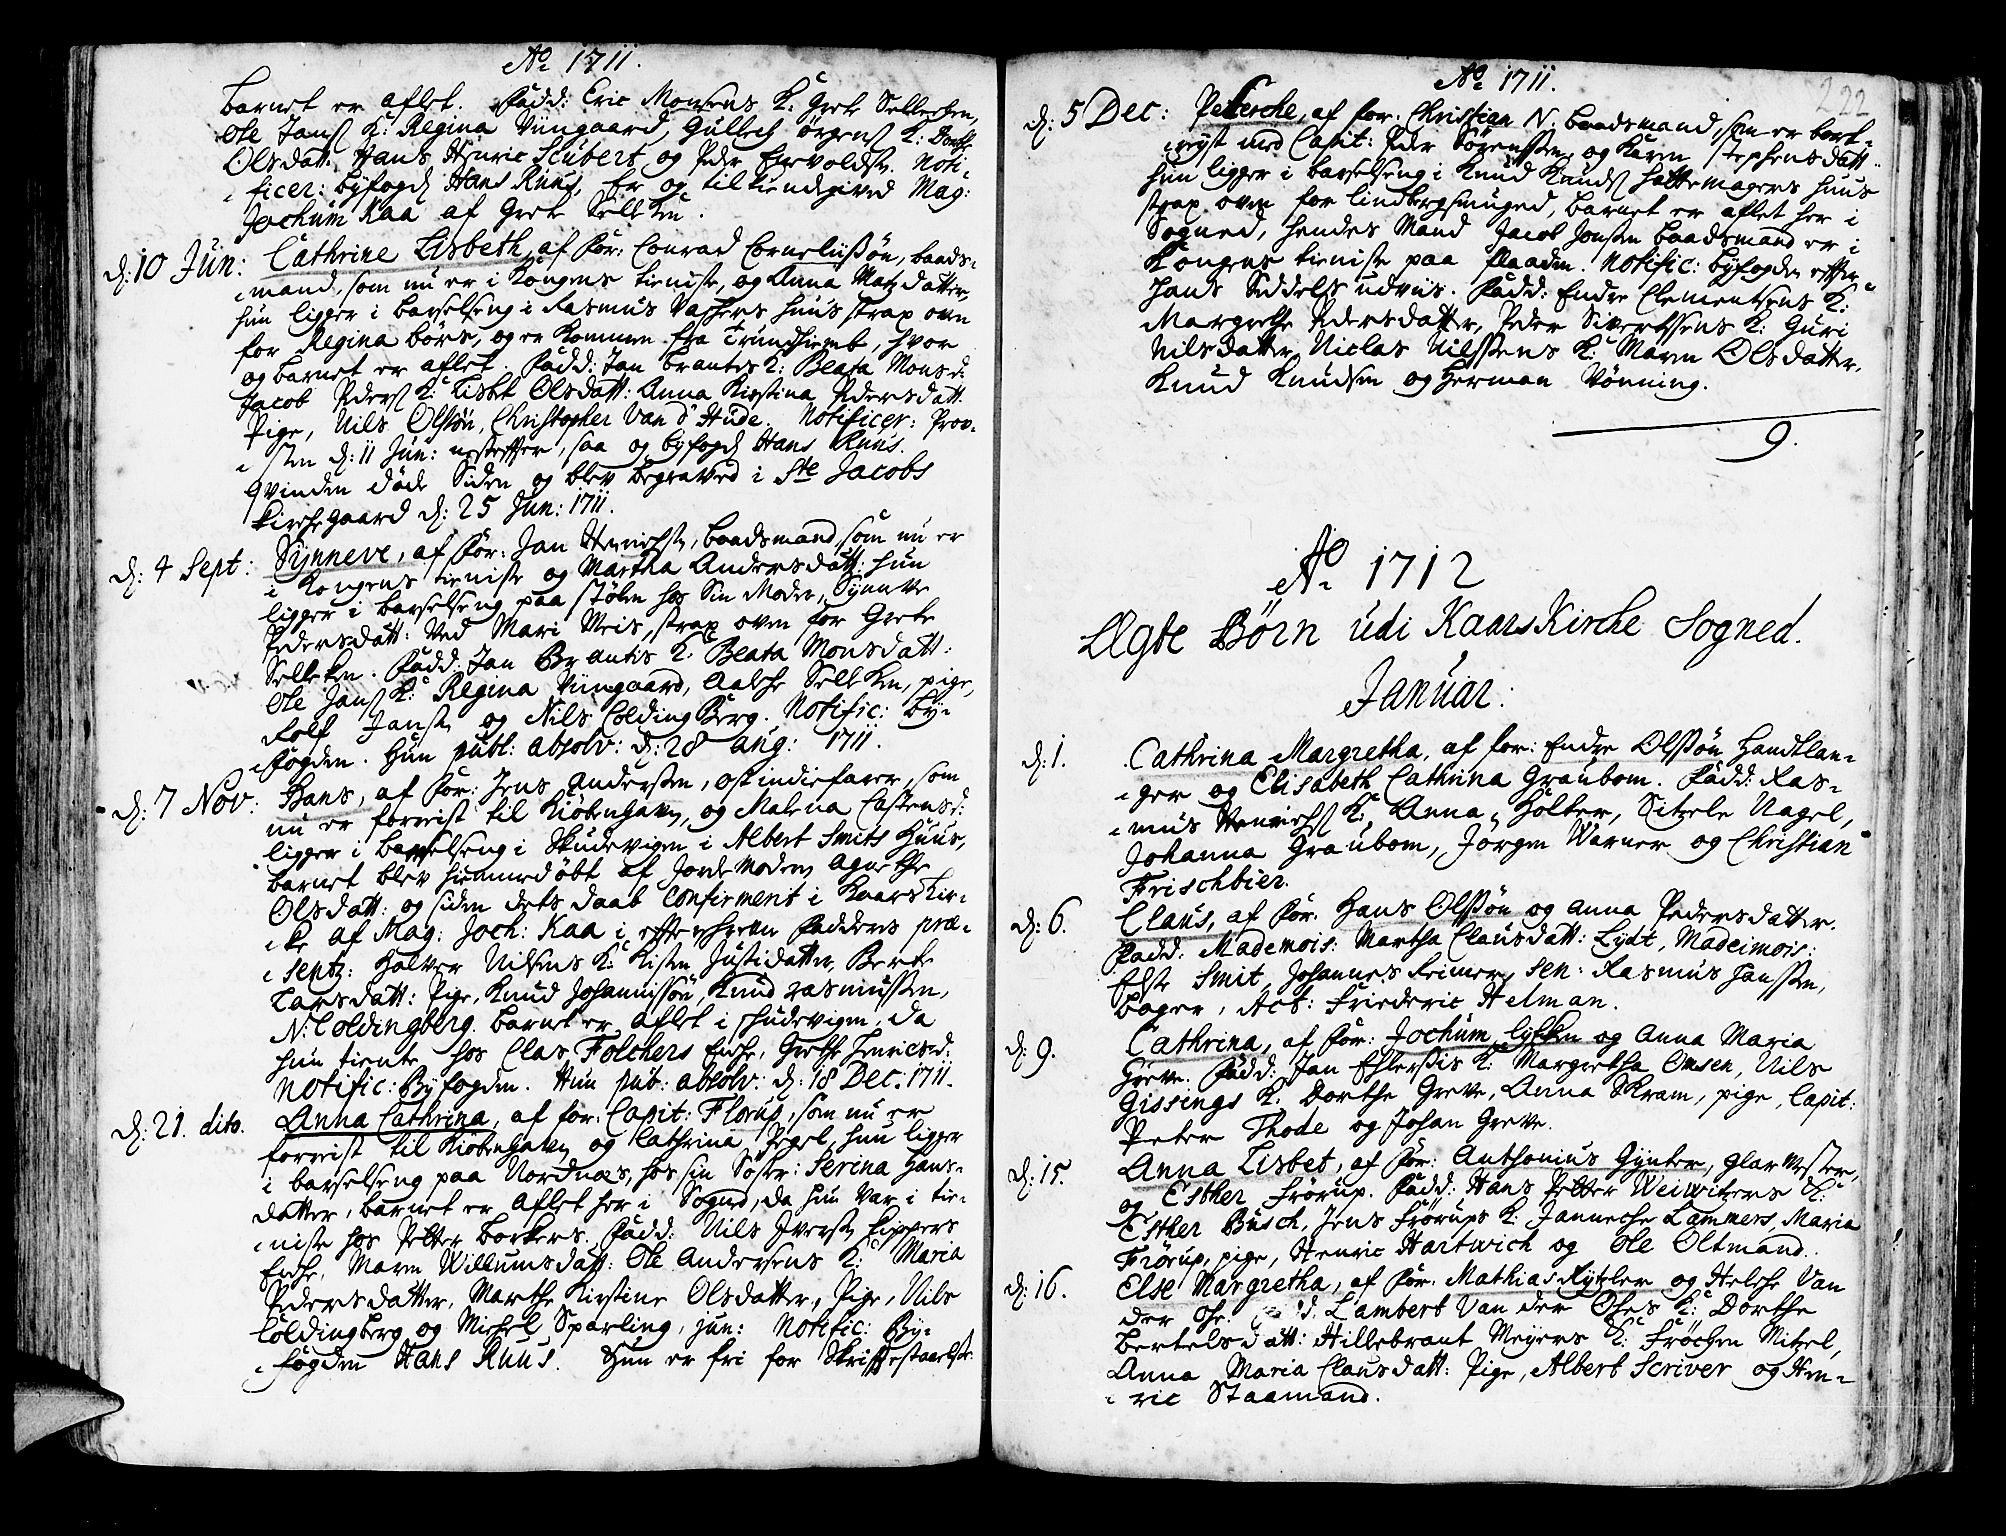 Aº 1711.
barnet er aflet. Fadd: Eric Monsens K: Grete Sellechen,
Ole Jans K: Regina Viingaard, Gullech Ørgens K: Dorthe
Olsdatt: Hans Henric Scubert, og Peder Enevolds. Noti-
ficer: byfogd Hans Ruus, Er og tilkiendgived Mag:
Jochum Kaa af Grete Selleken.
d: 10 Jun: Cathrine Lisbeth, af For: Conrad Corneliissøn, baads-
mand, som nu er i Kongens tieniste, og Anna Matzdatter,
hun ligger i barselseng i Rasmus Vassers huus strax oven
for Regina Børs, og er kommen fra Trundhiemb, hvor
og barnet er aflet. Fadd: Jan Brantes K: Beata Monsd:
Jacob Peders K: Lisbet Olsdatt: Anna Kirstina Pedersdatt:
Pige, Nils Olssøn, Christopher Van d' Hude. Notificer: Prov-
sten d: 11 Jun: nestefter, saa og byfogd Hans Ruus.
Qvinden døde Siden og blev begraved i Ste Jacobs
Kirchegaard d: 25 Jun: 1711.
d: 4 Sept: Synneve, af For: Jan Henrichs, baadsmand, som nu er
i Kongens tieniste og Martha Andersdatt: hun
ligger i barselseng paa Stølen hos Sin Moder, Synneve
Pedersdatt: Ved Mari Meis, strax oven for Grete
Selleken. Fadd: Jan Brantis K: Beata Monsdatt:
Ole Jans K: Regina Viingaard, Aalche Selleken, pige,
Rolf Jans og Nils Colding Berg. Notific: By-
fogden. Hun publ: absolv: d: 28 aug: 1711.
d: 7 Nov: Hans, af For: Jens Anderssen, ostindiefarer, som
nu er forreist til Kiøbenhavn, og Malena Castensd:
ligger i barselseng i Skudevigen i Albert Smits Huus,
barnet blev hiemmedøbt af Jordemoderen Agnethe
Olsdatt: og siden dets daab confirmerit i Kaarskir-
ke af Mag: Joch: Kaa i efterskrevne Fadders præ-
sentz: Halvor Nilsens K: Kisten Justidatter, Berte
Larsdatt: Pige, Knud Johannissøn, Knud rasmussen,
N: Coldingberg. barnet er aflet i skudevigen, da
hun tiente hos Clas Folchers Enche, Grethe Henricsd:
Notific: Byfogden. Hun pub: absolv: d: 18 Dec: 1711.
d: 21. dito. Anna Cathrina, af For: Capit: Florup, som nu er
forreist til Kiøbenhavn og Cathrina Pegel, hun ligger
i barselseng paa Nordnæs, hos sin Søster: Serina Hans-
datter, barnet er aflet her i Sogned, da hun var i tie-
niste hos Petter Borkers. Fadd: Nils Ivers Kippers
Enche, Maren Willumsdatt: Ole Andersens K: Maria
Pedersdatter, Marthe Kirstine Olsdatter, Pige, Nils
Coldingberg og Michel Sparling, jun: Notific: By-
fogden Hans Ruus. Hun er fri for Skriftestaarelse.
222
Aº 1711.
d: 5 Dec: Peterche, af For: Christian N. baadsmand, som er bort-
reyst med Capit: Peder Sørenssen, og Karen Stephensdatt:
hun ligger i barselseng i Knud Knuds hattemagers huus
strax oven for Lindbergsmuged, barnet er aflet her i
Sogned, hendes Mand Jacob Jonsen baadsmand er i
Kongens tieniste paa flaaden. Notific: byfogden effter
hans Siddels udviis. Fadd: Endre Clementsens K:
Margrethe Pedersdatter, Peder Sivertssens K: Guri
Nilsdatter, Niclas Nilssens K: Maren Olsdatter,
Knud Knudsen og Herman Vønning.
9.
Aº 1712
Ægte Børn udi Kaarskirche Sogned.
Januar:
d: 1. Cathrina Margretha, af For: Endre Olssøn Handtlan-
ger og Elisabeth Cathrina Graubom. Fadd: Ras-
mus Henrichs K: Anna Holter, Sitzele Nagel,
Johanna Graubom, Jørgen Warner og Christian
Frischbier.
d: 6. Claus, af For: Hans Olssøn og Anna Pedersdatter.
Fadd: Mademois: Martha Clausdatt: Lydt, Mademois:
Else Smit, Johannes Reimers, sen: Rasmus Hanssen,
bager, Act: Friederic Helman.
d: 9. Cathrina, af For: Jochum Lyken og Anna Maria
Greve. Fadd: Jan Ehlersis K: Margretha Omsen, Nils
Gissings K: Dorthe Greve, Anna Skram, pige, Capit:
Peter Thode og Johan Greve.
d: 15. Anna Lisbet, af For: Anthonius Gynter, glarmester,
og Esther Frørup. Fadd: Hans Petter Weiwitzers K:
Esther Busch, Jens Frørups K: Janneche Lammers, Maria
Frørup, pige, Henric Hartwich og Ole Oltmand.
d: 16. Else Margretha, af For: Mathias Rytzler og Helche Van
der Ohe. Lambert Van der Ohes K: Dorthe
Bertelsdatt: Hillebrant Meyers K: Frøchen Mitzel,
Anna Maria Clausdatt: Pige, Albert Scriver og Hen-
ric Staamand.